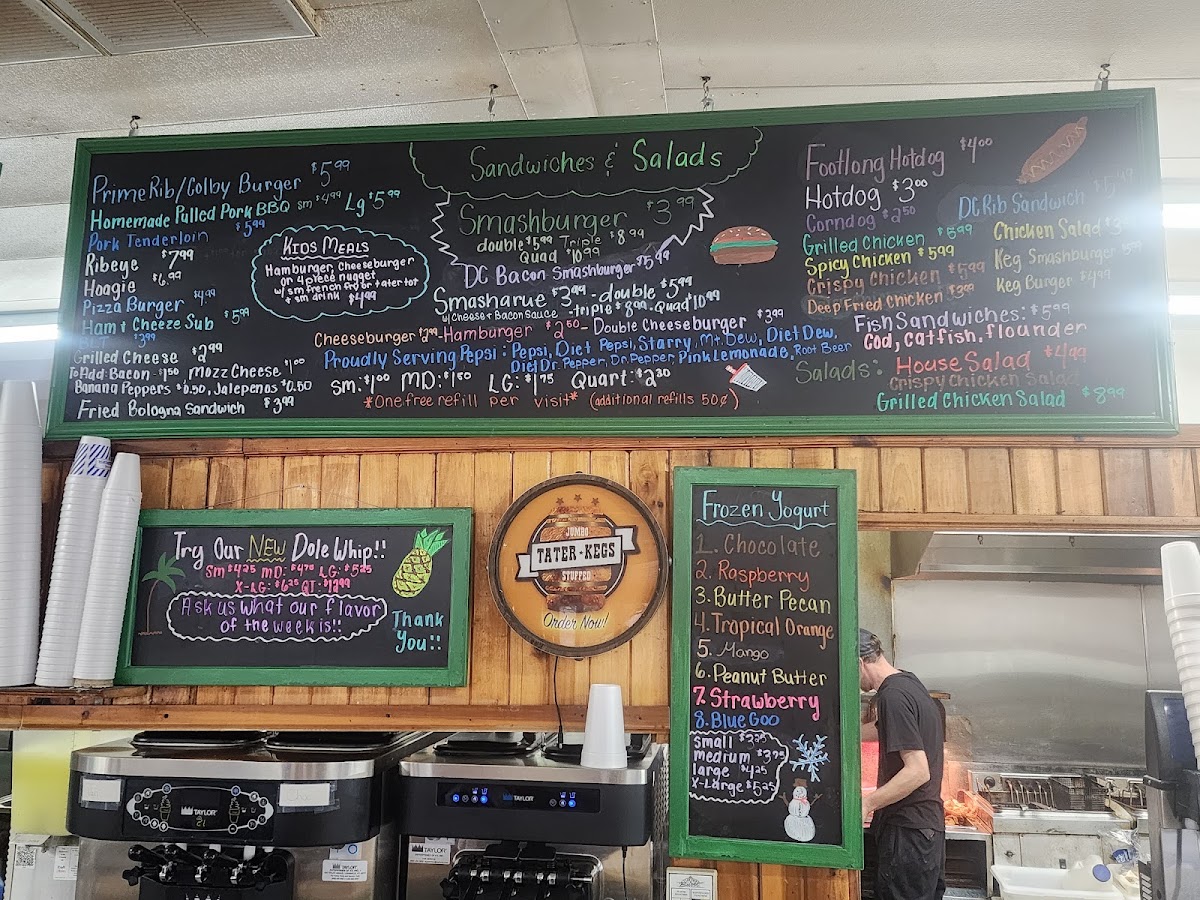 Sandwiches & Salads
Prime Rib/Colby Burger $5.99
Homemade Pulled Pork BBQ sm $4.99 Lg $5.99
Pork Tenderloin $5.99
Ribeye $7.99
Hoagie $6.99
Pizza Burger $4.99
Ham & Cheeze Sub $5.99
$3.99
Grilled Cheese $2.99
To Add: Bacon - $1.50 Mozz Cheese $1.00
Banana Peppers $0.50, Jalepenos $0.50
Fried Bologna Sandwich $3.99
Kids Meals
Hamburger, Cheeseburger
or 4 piece nugget
w/ sm french fry or tater tot
& sm drink $4.99
Smashburger $3.99
double $5.99 Triple $8.99
Quad $10.99
DC Bacon Smashburger $5.99
Smasharue $3.99 - double $5.99
w/ Cheese & Bacon Sauce - triple $8.99 - Quad $10.99
Cheeseburger $2.99 - Hamburger $2.50 - Double Cheeseburger $3.99
Proudly Serving Pepsi: Pepsi, Diet Pepsi, Starry, Mt. Dew, Diet Dew,
Diet Dr. Pepper, Dr. Pepper, Pink Lemonade, Root Beer
Sm: $1.00 MD: $1.50 LG: $1.75 Quart: $2.30
*One free refill per visit* (additional refills 50¢)
Footlong Hotdog $4.00
Hotdog $3.00
Corndog $2.50
Grilled Chicken $5.99
Spicy Chicken $5.99
Crispy Chicken $5.99
Deep Fried Chicken $3.99
DC Rib Sandwich $5.99
Chicken Salad $3
Keg Smashburger $5.99
Keg Burger $4.99
Fish Sandwiches: $5.99
Cod, catfish, flounder
Salads: House Salad $4.99
Crispy Chicken Salad
Grilled Chicken Salad $8.99
Try Our NEW Dole Whip!!
Sm $4.25 MD: $4.75 LG: $5.25
X-LG: $6.25 QT: $12.99
Ask us what our flavor
of the week is!!
Thank
You!!
JUMBO
TATER-KEGS
STUFFED
Order Now!
Frozen Yogurt
1. Chocolate
2. Raspberry
3. Butter Pecan
4. Tropical Orange
5. Mango
6. Peanut Butter
7. Strawberry
8. Blue Goo
small $3.25
medium $3.75
large $4.25
X-Large $5.25
TAYLOR
21
TAYLOR
TAYLOR
TAYLOR